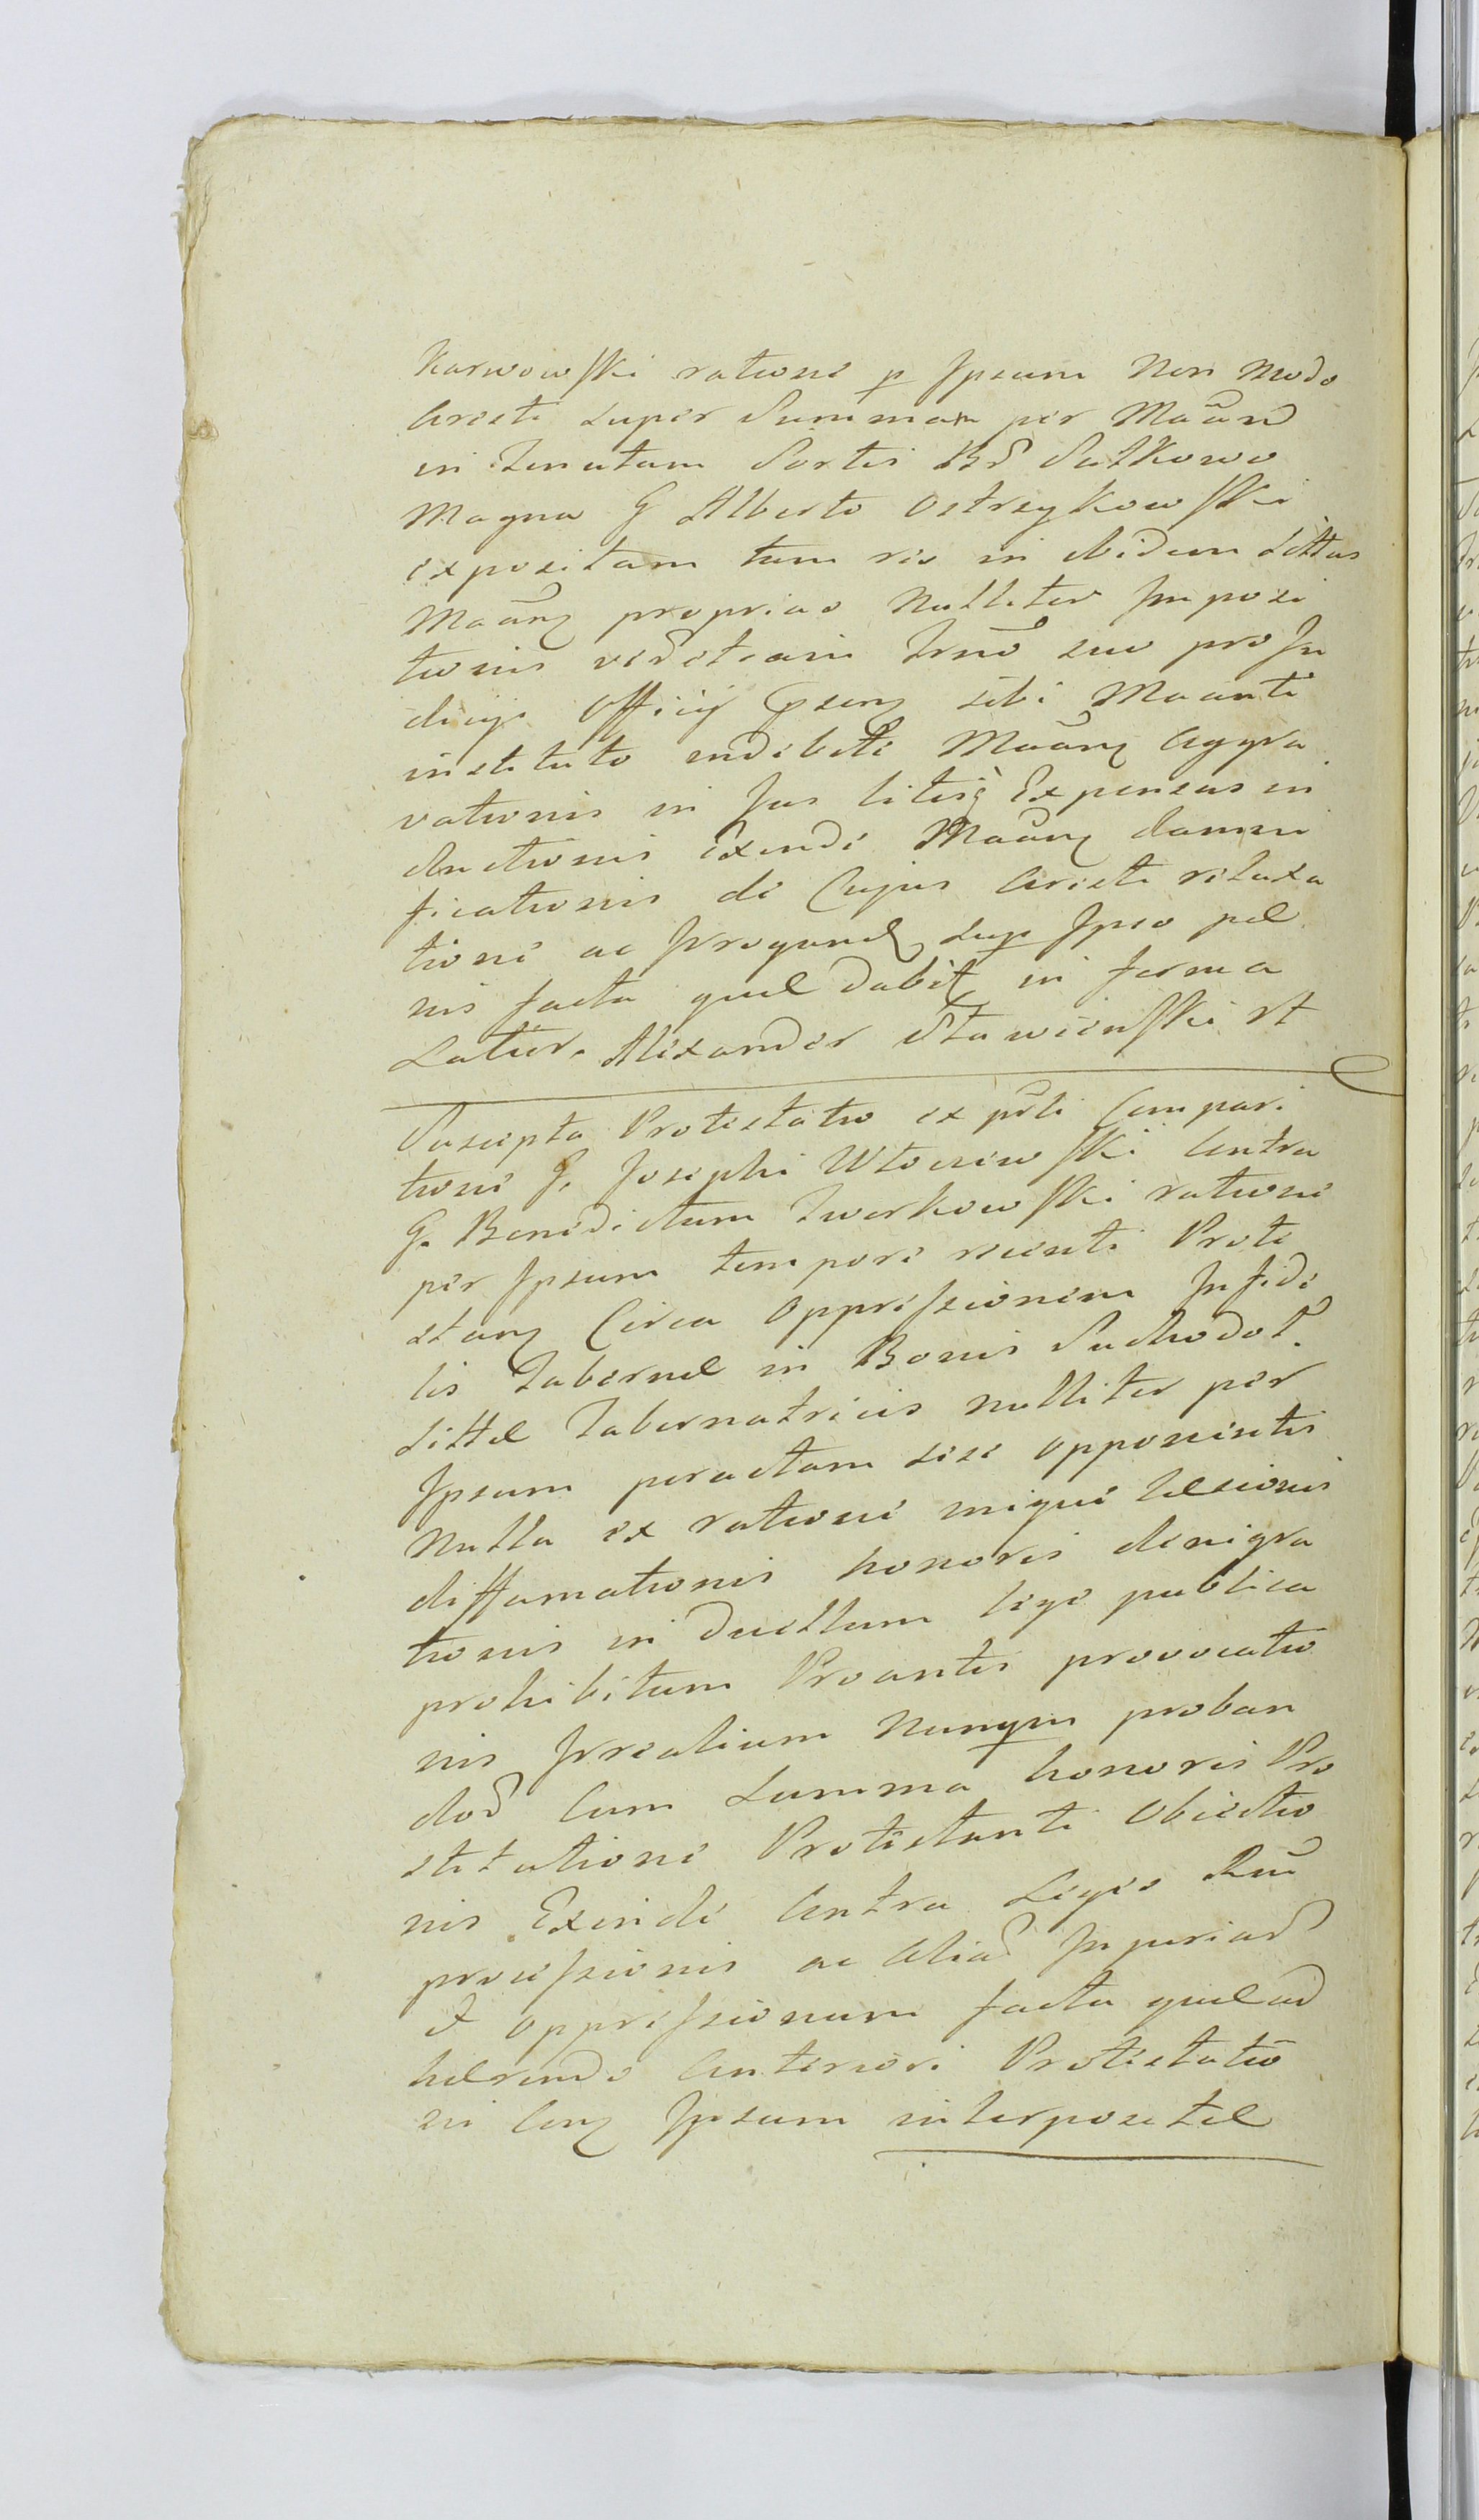 Karwowski ratione p Ipsum Non modo
Aresti super Summam per Maãnd
in Tenutam Sortis Bd Sutkowo
Magna G Alberto Ostrzykowski
expositam tum res in ibidem sittas
Maãnz proprias Nulliter Imposi
tionis
dicys Officij sibi Maanti
instituto indebite Maãnz Aggra
vationis in Jus litisq Expensas in
ductionis Exinde Maãnz damni
ficationis de Cujus Aresti relaxa
tione ac Irrogand sup Ipso pæ
nis facta quæ dabit in forma
Latior. Alexander Stawienski
Suscepta Protestatio ex prti Compari
tione G. Josephi Wtoczewski Contra
G. Benedictum Zworkowski ratione
per Ipsum tempore recenti Prote
stanz Circa Oppressionem Infide
lis Tabernæ in Bonis Suchodoł.
sittæ Tabernatricis nulliter per
Ipsum peractam sese opponentis
Nulla ex ratione inique læsionis
diffamationis honoris denigra
tionis in duellum lege publica
prohibitum Proantis provocatio
nis Irrealium Nunqm proban
dod Cum Summa honoris Pro
stitutione Protestanti Obiectio
nis Exinde Contra Leges Rni
processionis ac Aliad Injuriad
et oppressionum facta quæ ad
hærendo Anteriori Protestatio
ni Conz Ipsum interpositæ